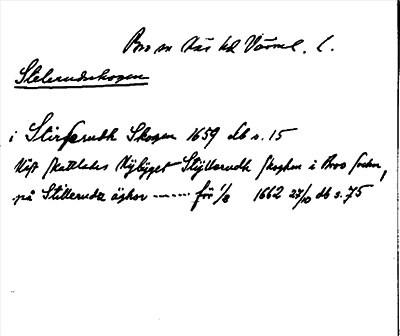 Bro sn Näs hd Värml. l.
Stelerudsskogen
i Stirserudh Skogen 1659 db s. 15
Nyst skattlades Nybygget Stijllerudh skoghen i Broo sochn,
på Stillerudz äghor ------ för 1/8 1662 27/10 db s. 75